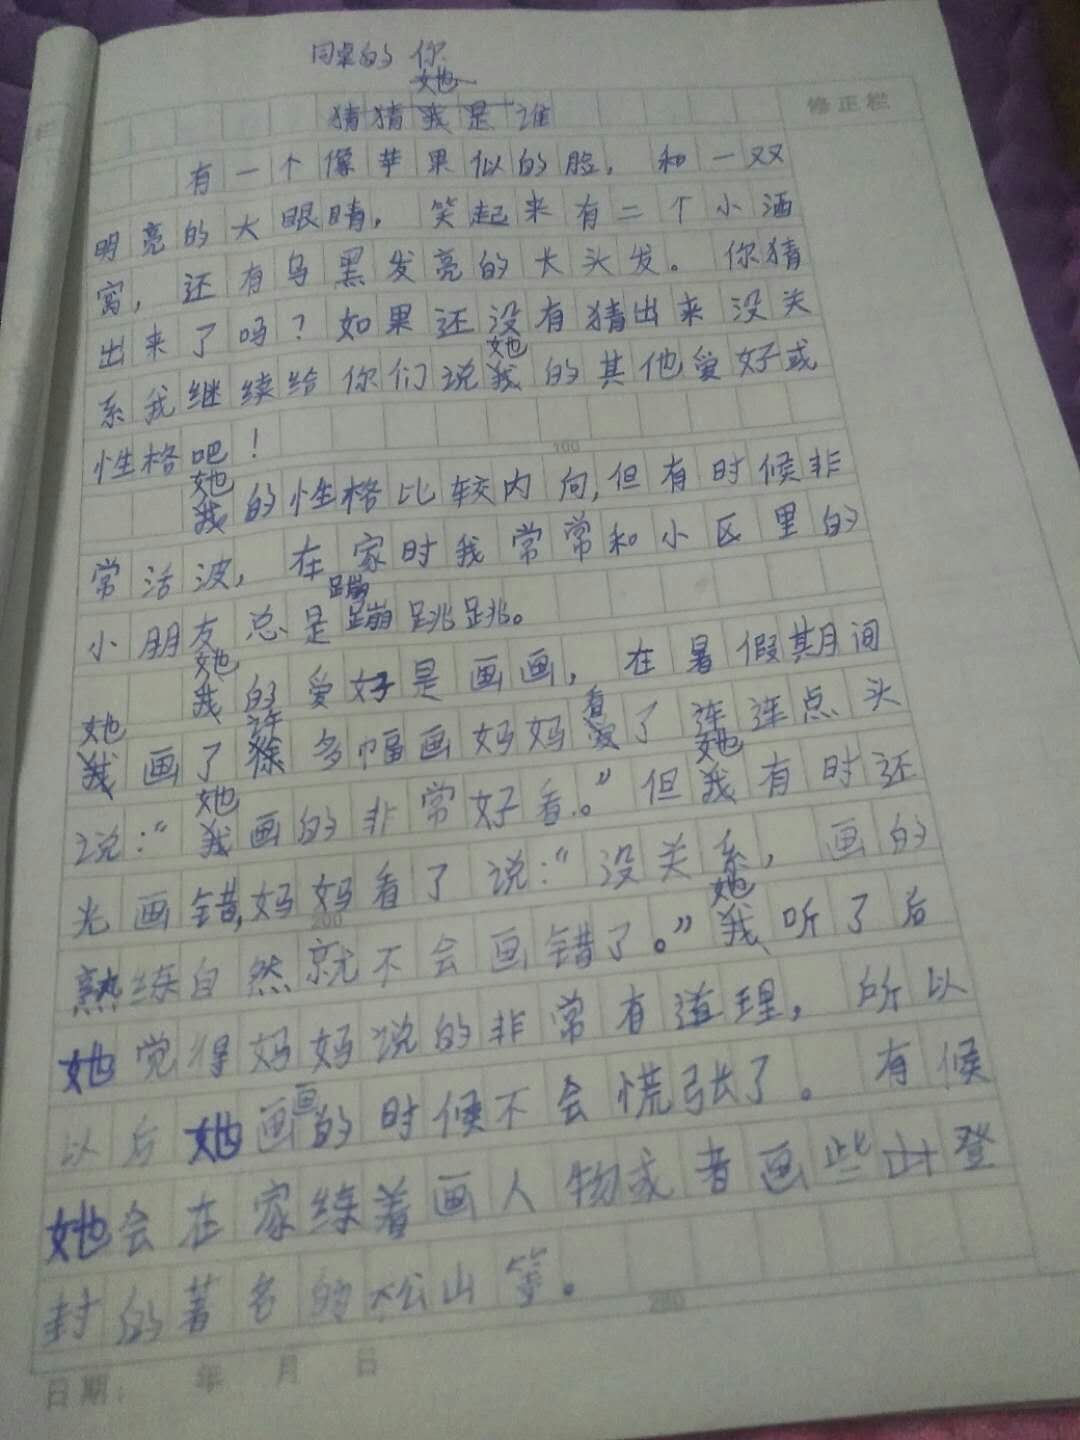 同桌的你
她
猜猜我是谁
修正栏
有一个像苹果似的脸，和一双
明亮的大眼睛，笑起来有二个小酒
窝，还有乌黑发亮的长头发。你猜
出来了吗？如果还没有猜出来没关
她
系我继续给你们说我的其他爱好或
性格吧！
100
她
我的性格比较内向,但有时候非
常活波，在家时我常常和小区里的
蹦
小朋友总是蹦跳跳。
她
我的爱好是画画，在暑假其月间
她 许 看
我画了徐多幅画妈妈爱了连连点头
她 她
说：“我画的非常好看。”但我有时还
光画错,妈妈看了说：“没关系，画的
200 她
熟练自然就不会画错了。”我听了后
她觉得妈妈说的非常有道理，所以
画
以后她画的时候不会慌张了。有候
她会在家练着画人物或者画些山登
封的著名的松山等。
日期： 年 月 日